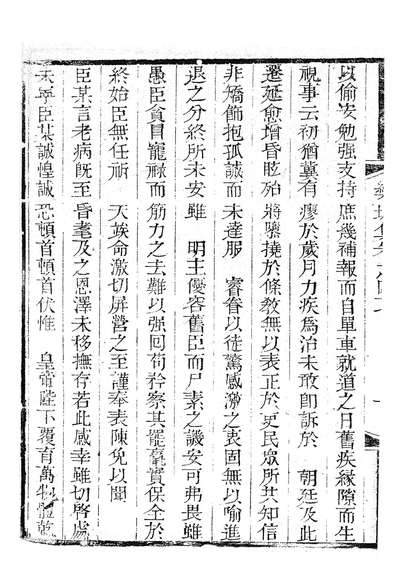 以偷安勉强支持庶幾補報而自單車就道之日舊疾緣隙而生
視事云初猶冀有瘳於歲月力疾為治未敢卽訴於 朝廷及此
遷延愈增昏眩殆將隳撓於條教無以表正於吏民眾所共知信
非矯飾抱孤誠而未達服 睿眷以徒驚感激之衷固無以喻進
退之分終所未安雖 明主優容舊臣而尸素之譏安可弗畏雖
愚臣貪冒寵祿而筋力之去難以强回苟矜察其罷癃實保全於
終始臣無任祈 天竢命激切屏營之至謹奉表陳免以聞
臣某言老病旣至昏耄及之恩澤未移撫存若此感幸雖切啓處
未寧臣某誠惶誠恐頓首頓首伏惟 皇帝陛下覆育萬物體乾